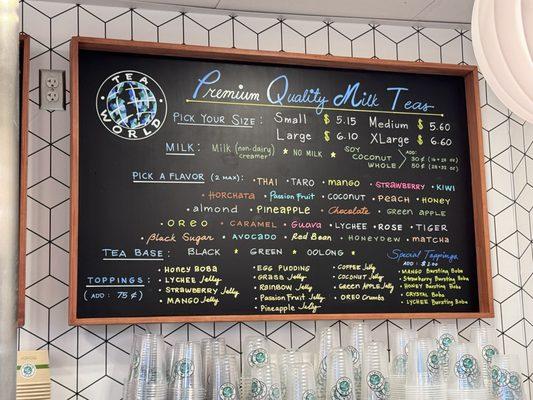 TEA
WORLD
Premium Quality Milk Teas
PICK YOUR SIZE: Small $ 5.15 Medium $ 5.60
Large $ 6.10 XLarge $ 6.60
MILK: Milk (non-dairy creamer) ★ NO MILK ★ SOY COCONUT WHOLE ADD: 30¢ (16+24 oz) 50¢ (28+32 oz)
PICK A FLAVOR (2 MAX): • THAI • TARO • mango • STRAWBERRY • KIWI
• HORCHATA • Passion Fruit • COCONUT • PEACH • HONEY
• almond • PINEAPPLE • Chocolate • Green apple
• OREO • CARAMEL • Guava • LYCHEE • ROSE • TIGER
• Black Sugar • AVOCADO • Red Bean • HONEYDEW • MATCHA
TEA BASE: BLACK ★ GREEN ★ OOLONG ★
TOPPINGS:
(ADD: 75¢)
• HONEY BOBA
• LYCHEE Jelly
• STRAWBERRY Jelly
• MANGO Jelly
• EGG PUDDING
• GRASS Jelly
• RAINBOW Jelly
• PASSION FRUIT Jelly
• Pineapple Jelly
• COFFEE Jelly
• COCONUT Jelly
• GREEN APPLE Jelly
• OREO Crumbs
Special Toppings
ADD: $ 2.00
• MANGO Bursting Boba
• STRAWBERRY Bursting Boba
• HONEY Bursting Boba
• CRYSTAL Boba
• LYCHEE Bursting Boba